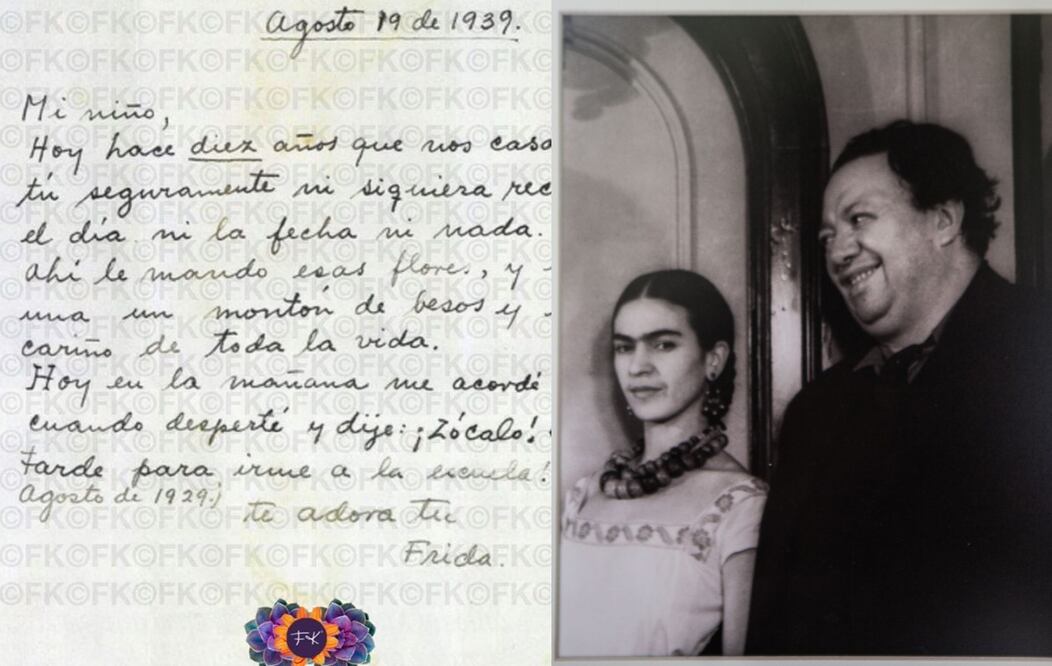 Agosto 19 de 1939.
Mi niño,
Hoy hace diez años que nos casa
tú seguramente ni siquiera rec
el día ni la fecha ni nada.
Ahí le mando esas flores, y
una un montón de besos y
cariño de toda la vida.
Hoy en la mañana me acordé
cuando desperté y dije: ¡Zócalo!
tarde para irme a la escuela!
Agosto de 1929.)
te adora tu
Frida.
FK
©FK©FK©FK©FK©FK©FK©FK©FK